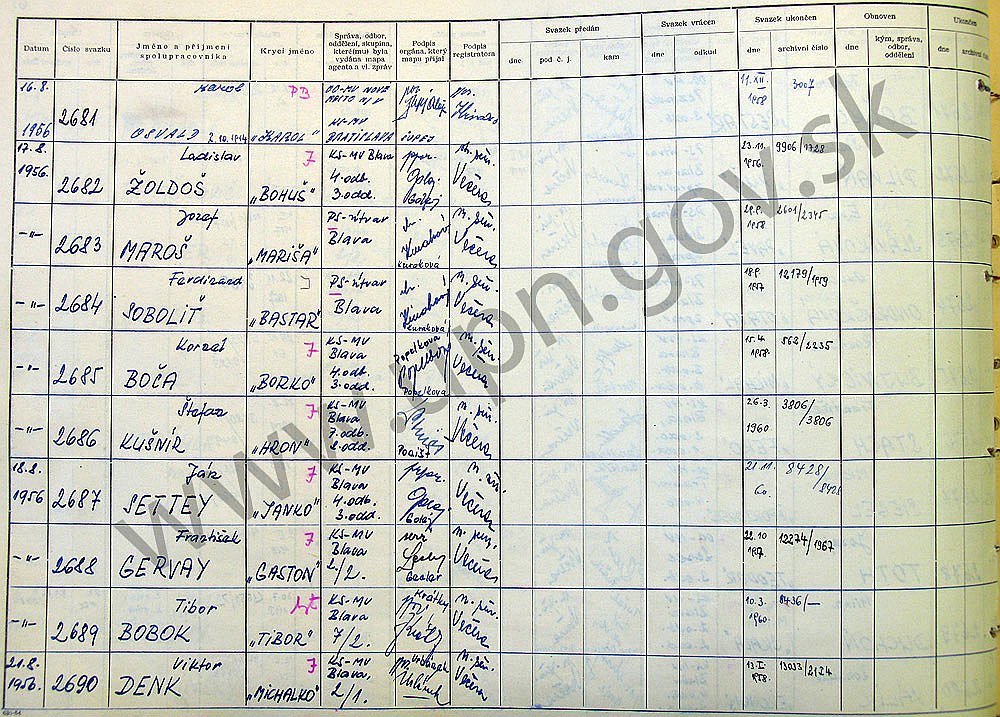 Datum
Číslo svazku
Jméno a příjmení
spolupracovníka
Krycí jméno
Správa, odbor,
oddělení, skupina,
kterému(i) byla
vydána mapa
agenta a vl. zpráv
Podpis
orgána, který
mapu přijal
Podpis
registrátora
Svazek předán
dne
pod č. j.
kam
Svazek vrácen
dne
odkud
Svazek ukončen
dne
archivní číslo
Obnoven
dne
kým, správa,
odbor,
oddělení
Ukončen
dne
16.8.
1956
2681
Karol
OSVALD 2.10.1914
PB
„KAROL"
OO-MV NOVÉ
MESTO N/V
KS-MV
BRATISLAVA
11.XII.
1958
3007
17.8.
1956.
2682
Ladislav
ŽOLDOŠ
7
„BOHUŠ"
KS-MV Blava
4. odb.
3. odd.
Golej
Večera
23.11.
1956.
9906/1728
-"-
2683
Jozef
MAROŠ
„MARIŠA"
PS-útvar
Blava
Kuraková
Večera
1958
2601/2345
-"-
2684
Ferdinand
SOBOLIŤ
„BASTAR"
PS-útvar
Blava
Kuraková
Večera
18.9.
1957
12179/1959
-"-
2685
BOČA
7
„BORKO"
KS-MV
Blava
4. odb.
3. odd.
Popelková
Popelková
Večera
15.4.
1958.
562/2235
-"-
2686
Štefan
KUŠNÍR
7
„HRON"
KS-MV
Blava
7. odb.
2. odd.
Večera
26.3.
1960
3806/3806
18.8.
1956
2687
Ján
SETTEY
7
„JANKO"
KS-MV
Blava
4. odb.
3. odd.
Golej
Večera
21.11.
60.
8428/8428
-"-
2688
František
GERVAY
7
„GASTON"
KS-MV
Blava
2/2.
Večera
22.10
1957.
12274/1967
-"-
2689
Tibor
BOBOK
„TIBOR"
KS-MV
Blava
7/2.
Krátky
Večera
10.3.
1960.
8436/—
21.8.
1956.
2690
Viktor
DENK
7
„MICHALKO"
KS-MV
Blava,
2/1.
Večera
13.I.
1958.
13033/2124
www.upn.gov.sk